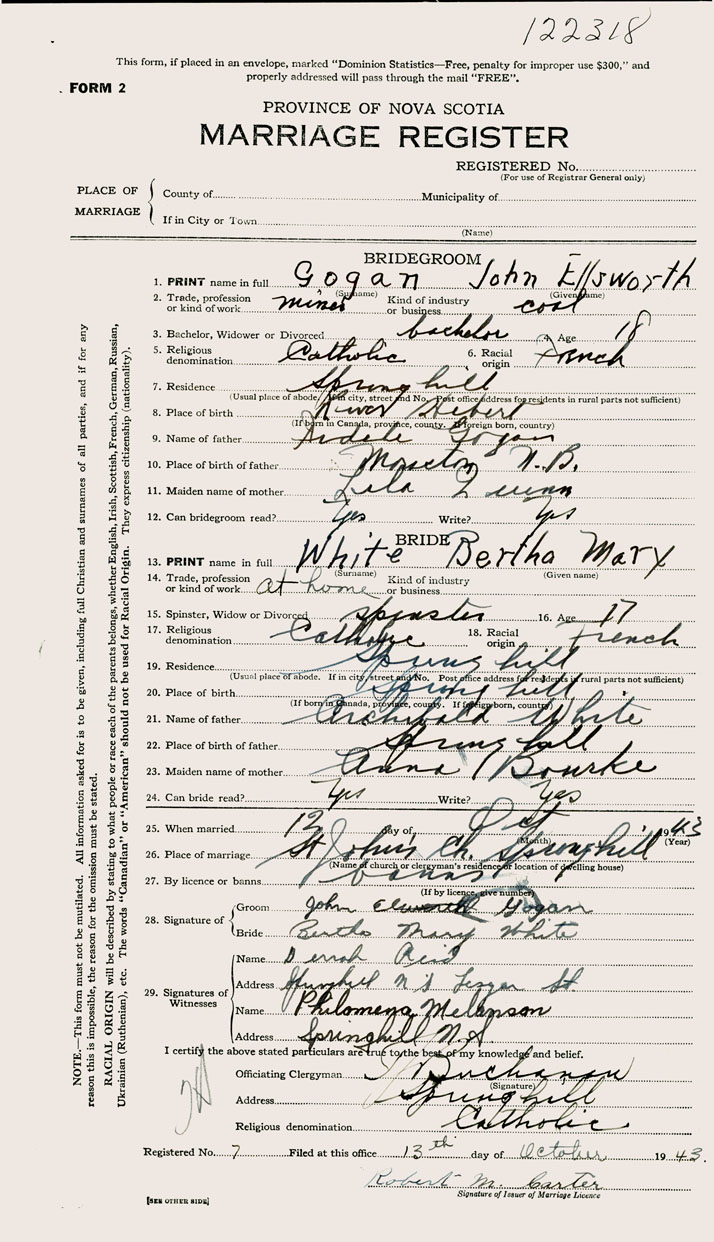 122318
This form, if placed in an envelope, marked "Dominion Statistics—Free, penalty for improper use $300," and
properly addressed will pass through the mail "FREE".
FORM 2
PROVINCE OF NOVA SCOTIA
MARRIAGE REGISTER
REGISTERED No.
(For use of Registrar General only)
PLACE OF MARRIAGE
County of Municipality of
If in City or Town
(Name)
BRIDEGROOM
1. PRINT name in full Gogan John Ellsworth
(Surname) (Given name)
2. Trade, profession or kind of work miner Kind of industry or business coal
3. Bachelor, Widower or Divorced bachelor 4. Age 18
5. Religious denomination Catholic 6. Racial origin French
7. Residence Springhill
(Usual place of abode. If in city, street and No. Post office address for residents in rural parts not sufficient)
8. Place of birth River Hebert
(If born in Canada, province, county. If foreign born, country)
9. Name of father Gogan
10. Place of birth of father Moncton N.B.
11. Maiden name of mother Lila Quinn
12. Can bridegroom read? Yes Write? Yes
BRIDE
13. PRINT name in full White Bertha Mary
(Surname) (Given name)
14. Trade, profession or kind of work at home Kind of industry or business
15. Spinster, Widow or Divorced spinster 16. Age 17
17. Religious denomination Catholic 18. Racial origin French
19. Residence Springhill
(Usual place of abode. If in city, street and No. Post office address for residents in rural parts not sufficient)
20. Place of birth Springhill
(If born in Canada, province, county. If foreign born, country)
21. Name of father Archibald White
22. Place of birth of father Springhill
23. Maiden name of mother Anna Bourke
24. Can bride read? Yes Write? Yes
25. When married 12 day of Oct 1943
(Month) (Year)
26. Place of marriage St John's Ch. Springhill
(Name of church or clergyman's residence or location of dwelling house)
27. By licence or banns banns
(If by licence, give number)
28. Signature of
Groom John Gogan
Bride Bertha Mary White
29. Signatures of Witnesses
Name Reid
Address Springhill N S St
Name Philomena Melanson
Address Springhill N.S
I certify the above stated particulars are true to the best of my knowledge and belief.
Officiating Clergyman Buchanan
(Signature)
Address Springhill
Religious denomination Catholic
Registered No. 7 Filed at this office 13th day of October 1943.
Robert M. Carter
Signature of Issuer of Marriage Licence
[SEE OTHER SIDE]
NOTE.—This form must not be mutilated. All information asked for is to be given, including full Christian and surnames of all parties, and if for any
reason this is impossible, the reason for the omission must be stated.
RACIAL ORIGIN will be described by stating to what people or race each of the parents belongs, whether English, Irish, Scottish, French, German, Russian,
Ukrainian (Ruthenian), etc. The words "Canadian" or "American" should not be used for Racial Origin. They express citizenship (nationality).